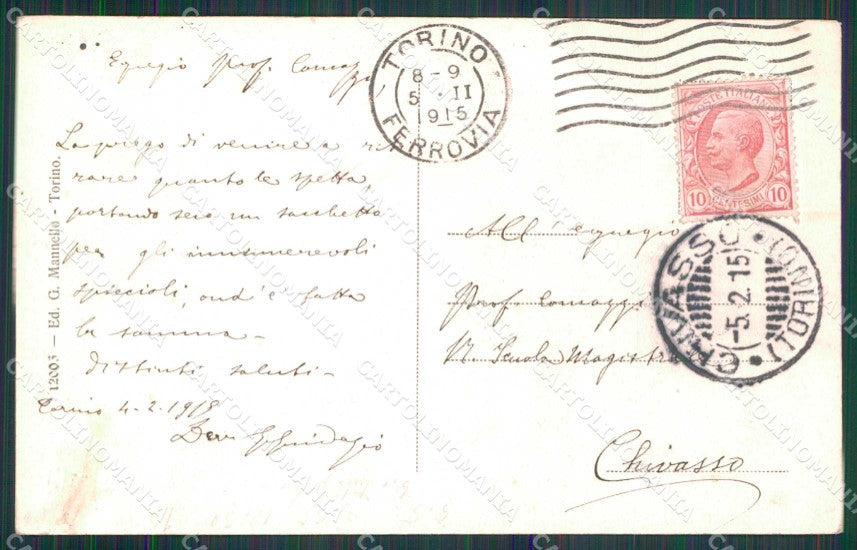 TORINO
8-9
5 · II
915
FERROVIA
POSTE ITALIANE
10 CENTESIMI 10
CHIVASSO
(TORINO)
-5.2.15
Egregio Prof. Comazzi,
La prego di venire a riti
rare quanto le spetta,
portando seco un sacchetto
per gli innumerevoli
spiccioli, ond'è fatta
la somma -
Distinti saluti -
Torino 4-2-1915
12003 - Ed. G. Mannello - Torino.
All'egregio
Prof. Comazzi
R. Scuola Magistrale
Chivasso
CARTOLINOMANIA